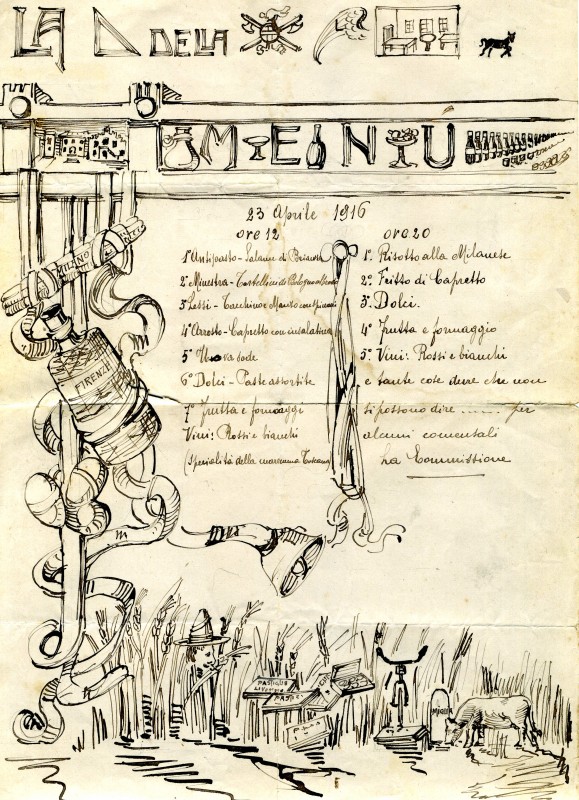 LA D DELA
MENÚ
23 Aprile 1916
ore 12
1º Antipasto - Salame di Brianza
2º Minestra - Tortellini di Bologna al brodo
3º Lessi - Tacchino e Manzo con spinaci
4º Arrosto - Capretto con insalatina
5º Uova sode
6º Dolci - Paste assortite
7º Frutta e formaggi
Vini: Rossi e bianchi
(Specialità della maremma Toscana)
ore 20
1º. Risotto alla Milanese
2º. Fritto di Capretto
3º. Dolci.
4º Frutta e formaggio
5º. Vini: Rossi e bianchi
e tante cose dere che non
si possono dire ....... per
alcuni comensali
La Commissione
MILANO
FIRENZE
m
PASTIGLIE
LIVORNO